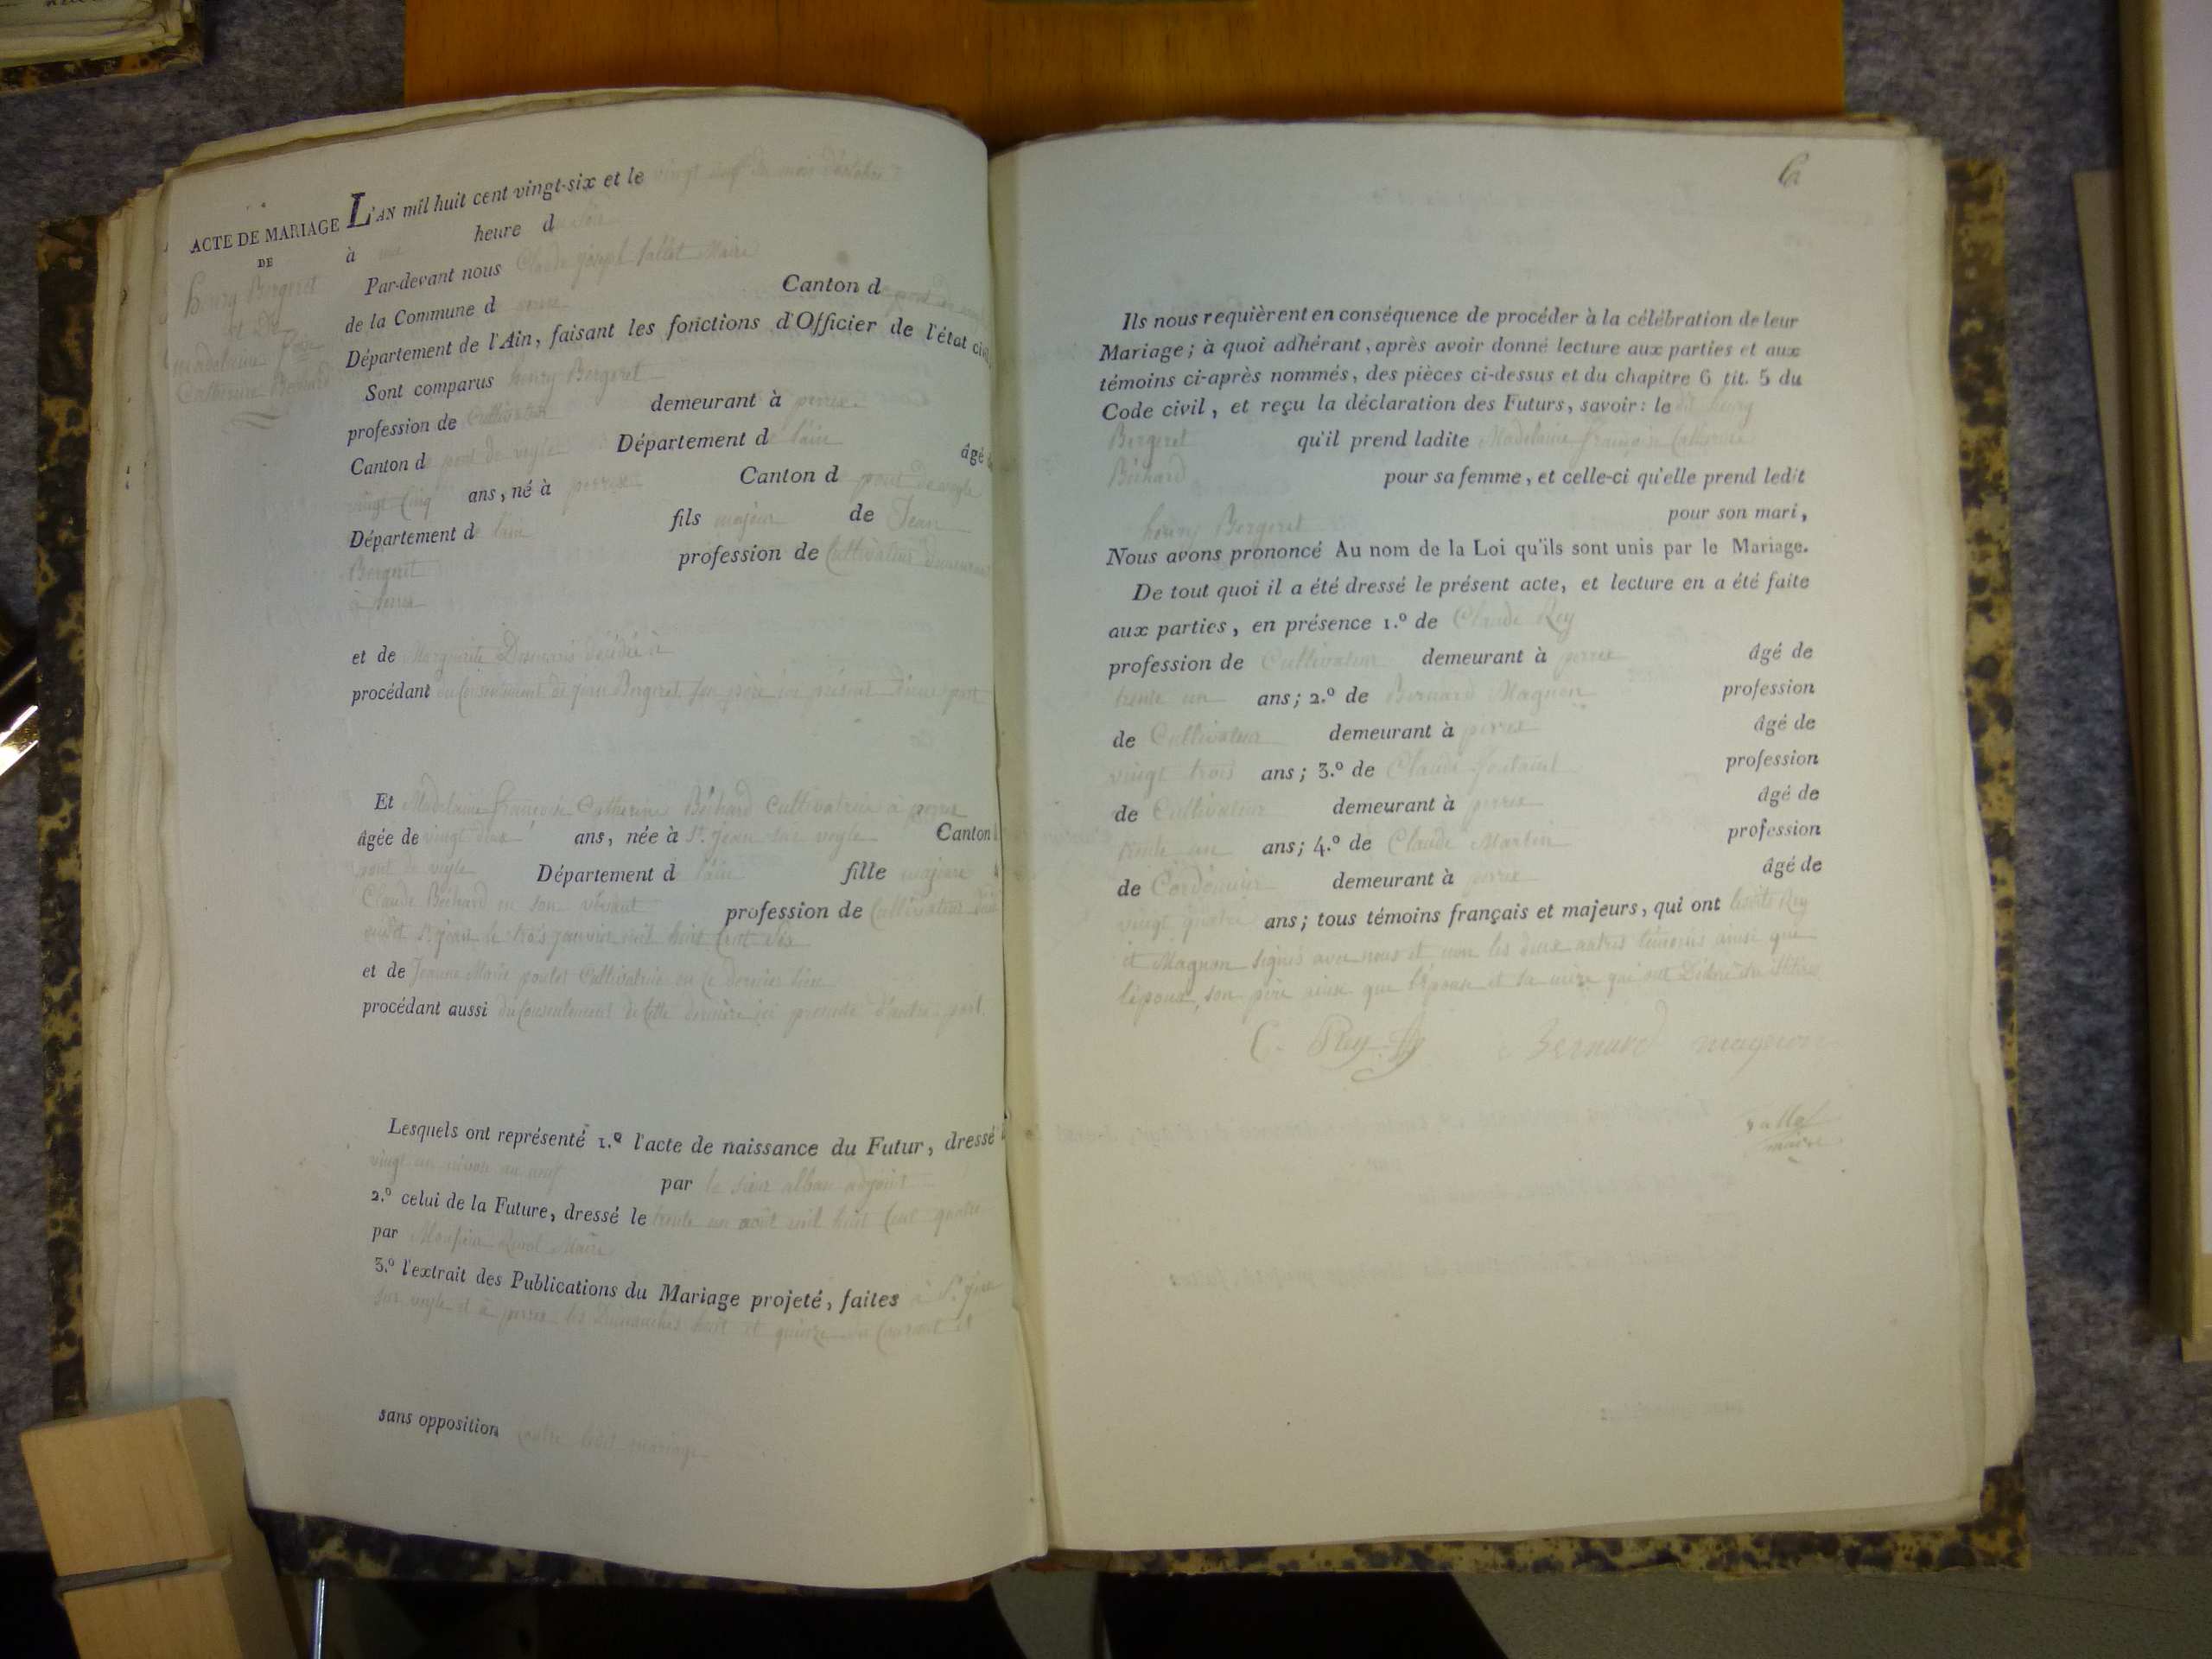 ACTE DE MARIAGE
DE
henry Bergeret
et De
Madelaine
Catherine Bechard
L'AN mil huit cent vingt-six et le vingt neuf du mois d'octobre
à une heure d
Par-devant nous Claude joseph Maire
de la Commune d Canton d
Département de l'Ain, faisant les fonctions d'Officier de l'état civil
Sont comparus henry Bergeret
profession de Cultivateur demeurant à perrex
Canton de pont de veyle Département de l'ain âgé
vingt cinq ans, né à perrex Canton de pont de veyle
Département de l'ain fils majeur de Jean
Bergeret profession de Cultivateur demeurant
à perrex
et de Marguerite décédée à
procédant du Consentement de jean Bergeret son père ici présent D'une part
Et Madelaine françoise Catherine Béchard Cultivatrice à perrex
âgée de vingt deux ans, née à St. jean sur veyle Canton
pont de veyle Département de l'ain fille majeure
Claude Béchard en son vivant profession de Cultivateur
audit St. jean le trois janvier mil huit Cent
et de Jeanne Marie Cultivatrice en ce dernier lieu
procédant aussi du Consentement de Cette dernière ici présente d'autre part.
Lesquels ont représenté 1.º l'acte de naissance du Futur, dressé
vingt un nivose an neuf par le sieur alban adjoint
2.º celui de la Future, dressé le trente un août mil huit Cent quatre
par Monsieur Maire
3.º l'extrait des Publications du Mariage projeté, faites à St. jean
sur veyle et à perrex les Dimanches huit et quinze du Courant et
sans opposition contre ledit mariage
Ils nous requièrent en conséquence de procéder à la célébration de leur
Mariage; à quoi adhérant, après avoir donné lecture aux parties et aux
témoins ci-après nommés, des pièces ci-dessus et du chapitre 6 tit. 5 du
Code civil, et reçu la déclaration des Futurs, savoir: le dit henry
Bergeret qu'il prend ladite Madelaine françoise Catherine
Béchard pour sa femme, et celle-ci qu'elle prend ledit
henry Bergeret pour son mari,
Nous avons prononcé Au nom de la Loi qu'ils sont unis par le Mariage.
De tout quoi il a été dressé le présent acte, et lecture en a été faite
aux parties, en présence 1.º de Claude Rey
profession de Cultivateur demeurant à perrex âgé de
trente un ans; 2.º de Bernard Magnon profession
de Cultivateur demeurant à perrex âgé de
vingt trois ans; 3.º de Claude profession
de Cultivateur demeurant à perrex âgé de
trente un ans; 4.º de Claude Martin profession
de Cordonnier demeurant à perrex âgé de
vingt quatre ans; tous témoins français et majeurs, qui ont lesdits Rey
et Magnon signés avec nous et non les deux autres témoins ainsi que
l'epoux, son père ainsi que l'épouse et sa mère qui ont Déclaré être illitérés
C. Rey
Bernard magnon
maire